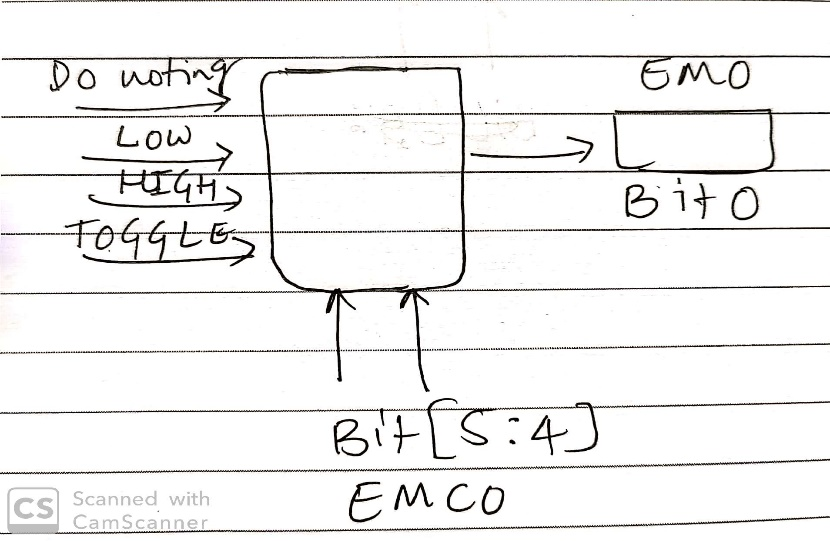 Do noting
LOW
HIGH
TOGGLE
EMO
Bit 0
Bit[5:4]
EMCO
CS Scanned with
CamScanner